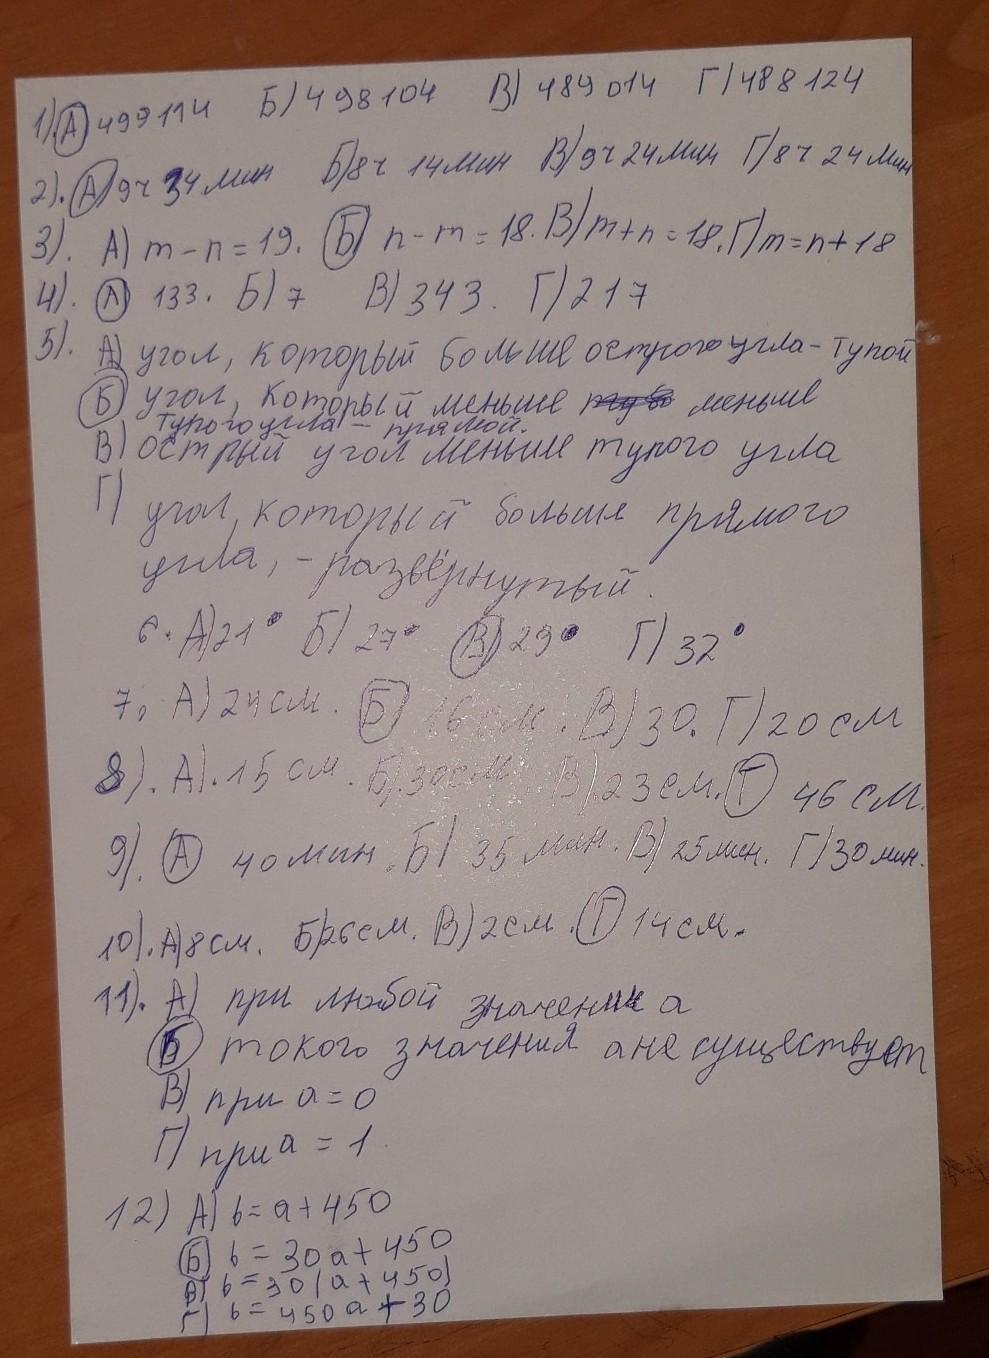 1). А) 499114 Б) 498104 В) 489014 Г) 488124
2). А) 9ч 34 мин Б) 8ч 14 мин В) 9ч 24 мин Г) 8ч 24 мин
3). А) m - n = 19. Б) n - m = 18. В) m + n = 18. Г) m = n + 18
4). А) 133. Б) 7 В) 343. Г) 217
5). А) угол, который больше острого угла - тупой
Б) угол, который меньше меньше
тупого угла - прямой.
В) острый угол меньше тупого угла
Г) угол, который больше прямого
угла, - развёрнутый.
6. А) 21° Б) 27° В) 29° Г) 32°
7. А) 24 см. Б) 16 см. В) 30. Г) 20 см
8). А). 15 см. Б) 30 см. В) 23 см. Г) 46 см.
9). А) 40 мин. Б) 35 мин. В) 25 мин. Г) 30 мин.
10). А) 8 см. Б) 26 см. В) 2 см. Г) 14 см.
11). А) при любой значении а
Б) токого значения а не существует
В) при а = 0
Г) при а = 1
12) А) b = a + 450
Б) b = 30 a + 450
В) b = 30 (a + 450)
Г) b = 450 a + 30